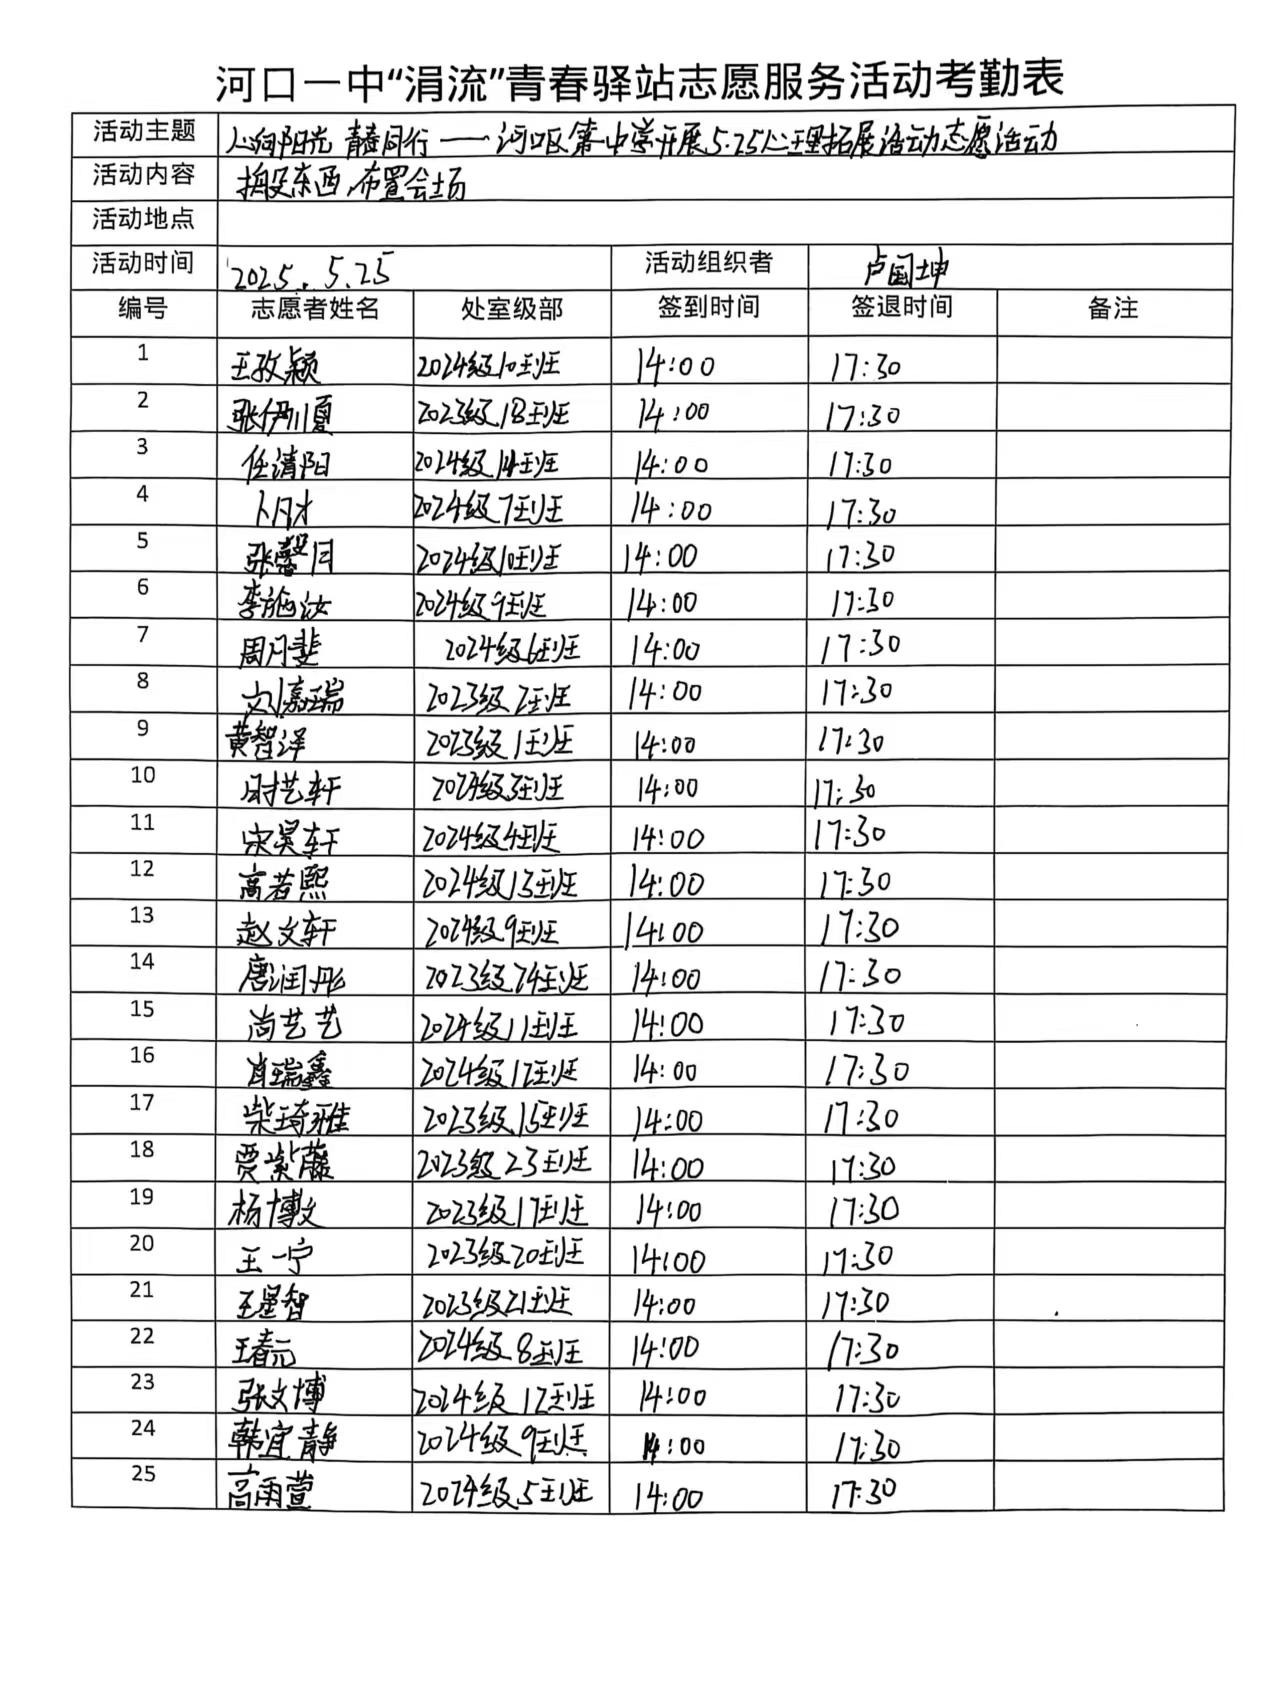 河口一中“涓流”青春驿站志愿服务活动考勤表
活动主题 心向阳光 青春同行——河口区第一中学开展5.25心理拓展活动志愿活动
活动内容 搬运东西、布置会场
活动地点
活动时间 2025.5.25 活动组织者 卢国坤
编号 志愿者姓名 处室级部 签到时间 签退时间 备注
1 王孜颖 2024级10班 14:00 17:30
2 张伊夏 2023级18班 14:00 17:30
3 任清阳 2024级14班 14:00 17:30
4 卜凡才 2024级7班 14:00 17:30
5 张馨月 2024级10班 14:00 17:30
6 李施汝 2024级9班 14:00 17:30
7 周月斐 2024级6班 14:00 17:30
8 刘嘉瑞 2023级2班 14:00 17:30
9 黄智泽 2023级1班 14:00 17:30
10 时艺轩 2024级3班 14:00 17:30
11 宋昊轩 2024级4班 14:00 17:30
12 高若熙 2024级13班 14:00 17:30
13 赵文轩 2024级9班 14:00 17:30
14 唐润彤 2023级24班 14:00 17:30
15 尚艺艺 2024级11班 14:00 17:30
16 肖瑞鑫 2024级12班 14:00 17:30
17 柴琦雅 2023级15班 14:00 17:30
18 贾紫藤 2023级23班 14:00 17:30
19 杨博文 2023级17班 14:00 17:30
20 王一宁 2023级20班 14:00 17:30
21 王星智 2023级21班 14:00 17:30
22 王春元 2024级8班 14:00 17:30
23 张文博 2024级12班 14:00 17:30
24 韩宜静 2024级9班 14:00 17:30
25 高雨萱 2024级5班 14:00 17:30